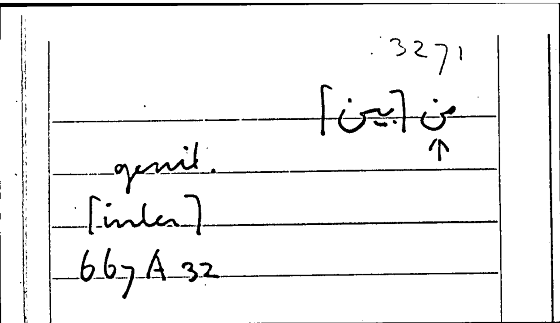 3271
من [بين]
↑
genit.
[inter]
667 A 32